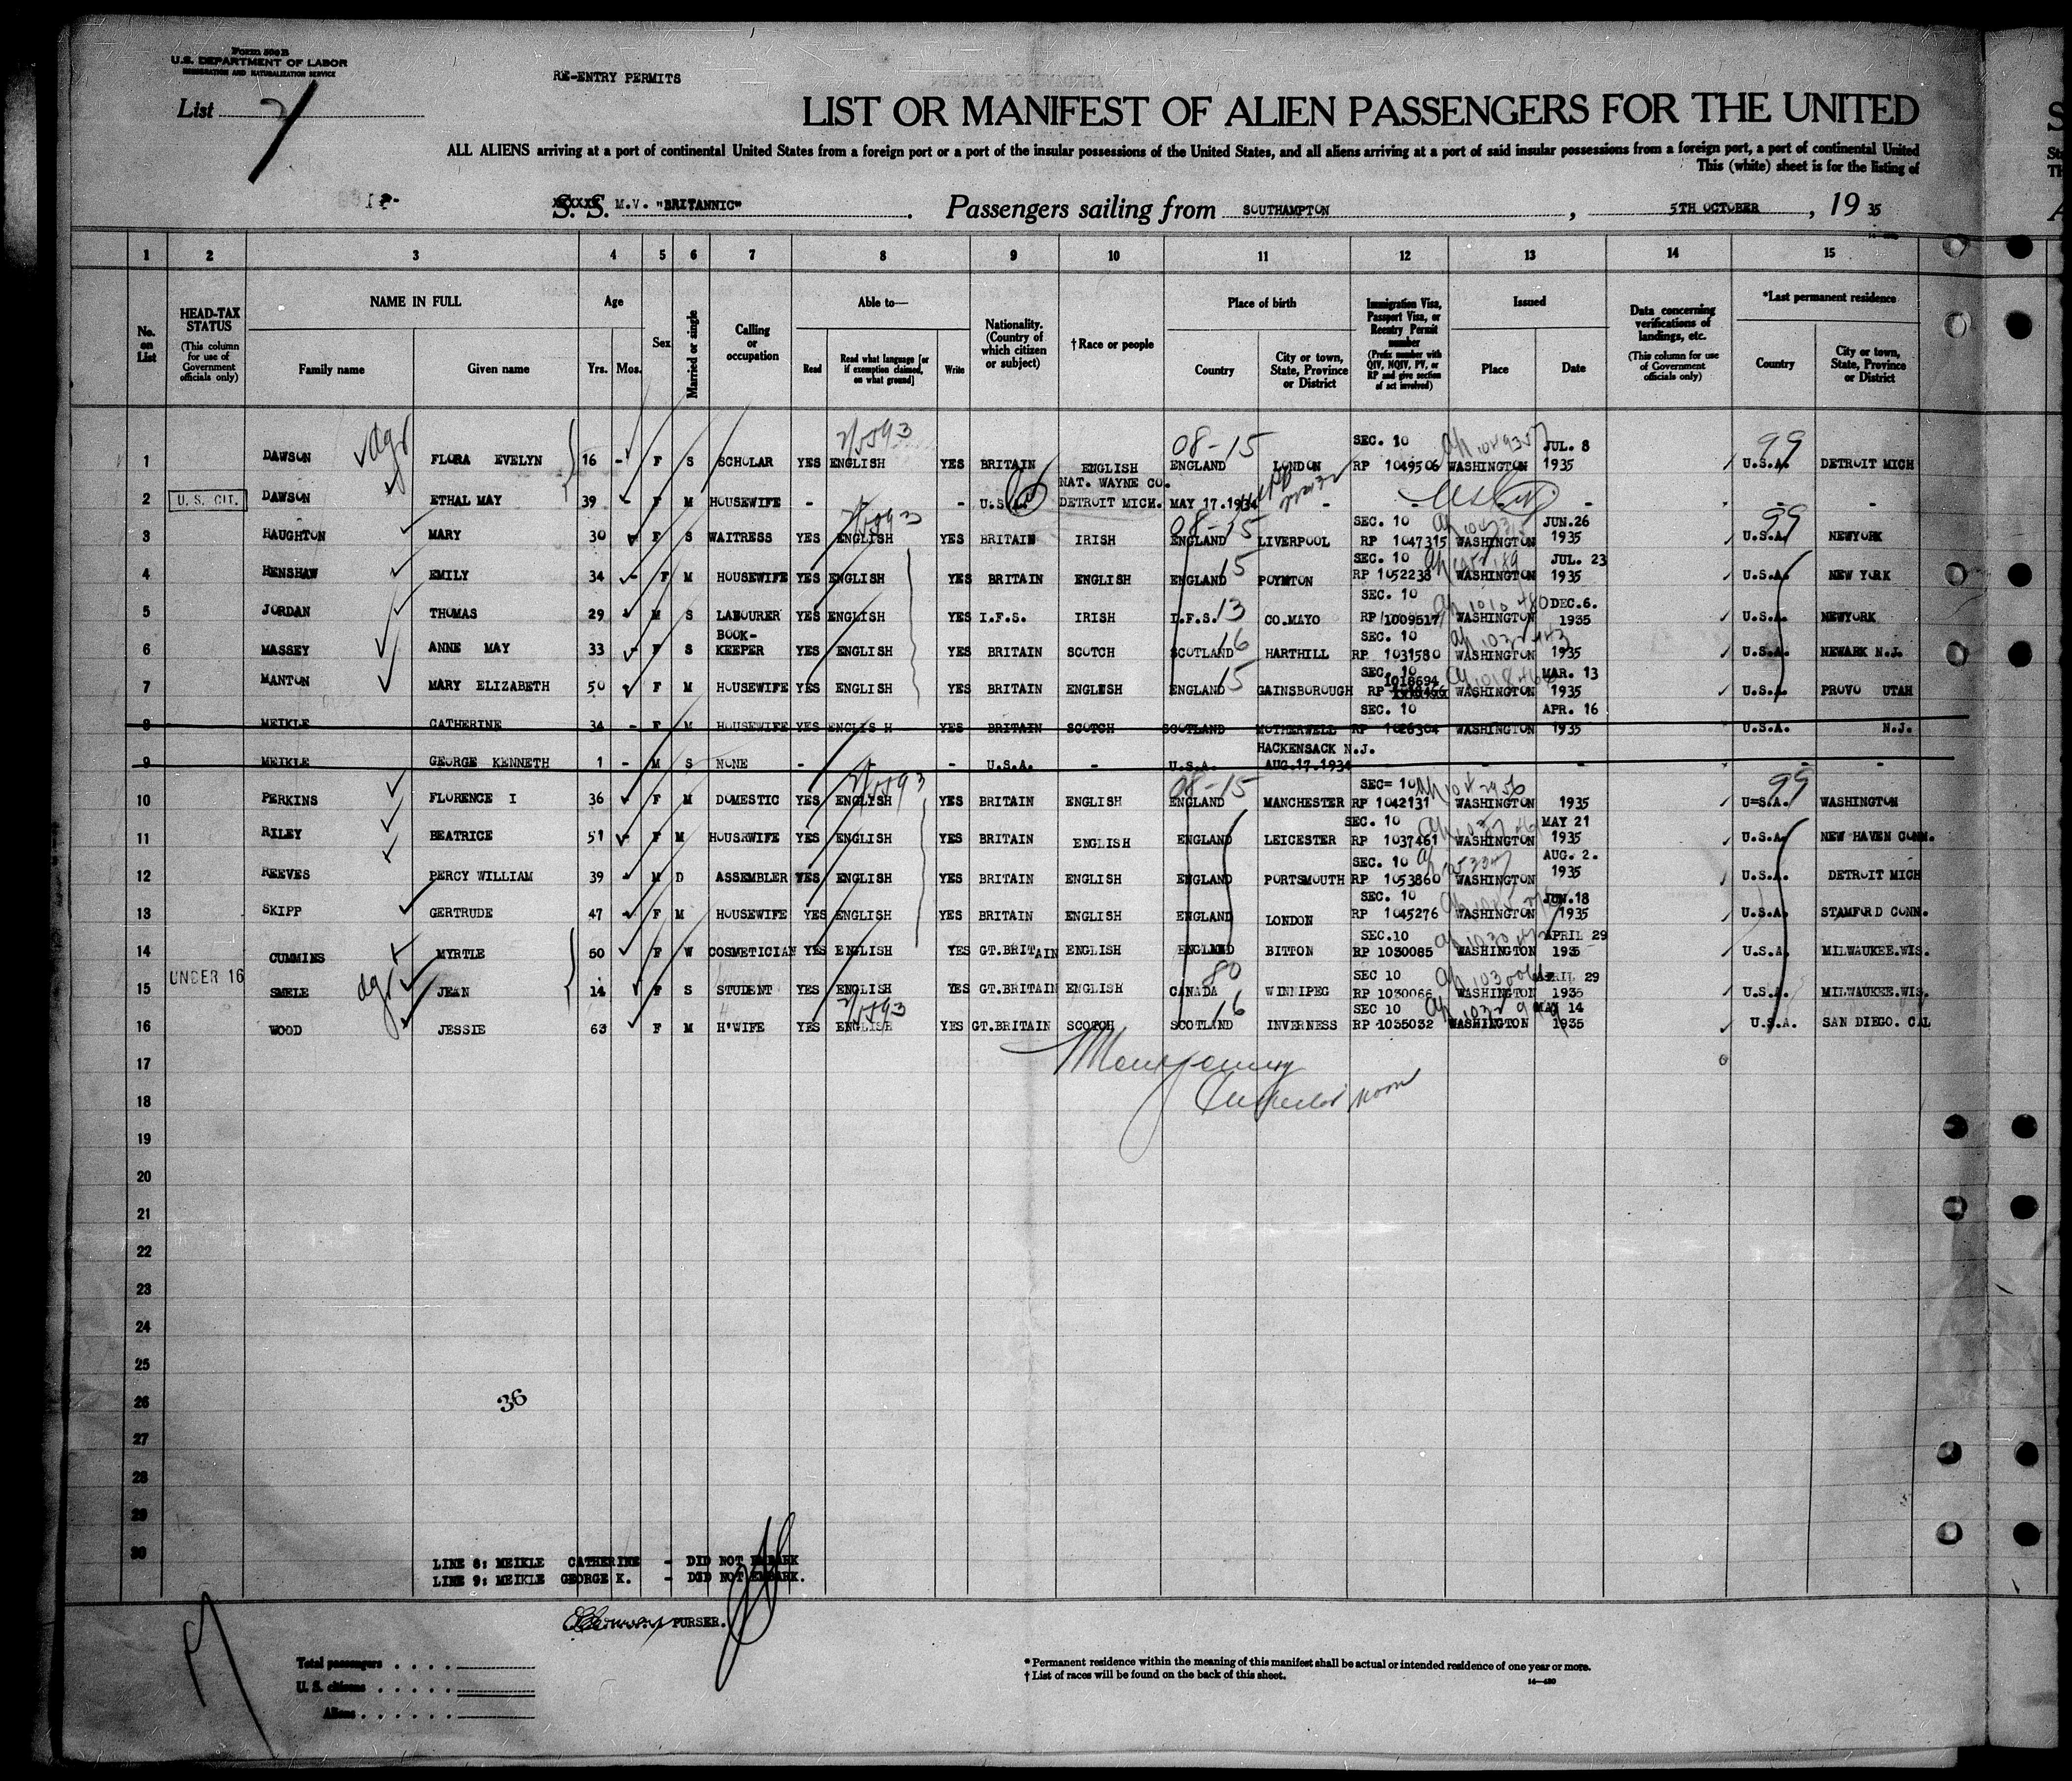 Form 500 B
U.S. DEPARTMENT OF LABOR
IMMIGRATION AND NATURALIZATION SERVICE
RE-ENTRY PERMITS
List
LIST OR MANIFEST OF ALIEN PASSENGERS FOR THE UNITED
ALL ALIENS arriving at a port of continental United States from a foreign port or a port of the insular possessions of the United States, and all aliens arriving at a port of said insular possessions from a foreign port, a port of continental United
This (white) sheet is for the listing of
S. S. M.V. "BRITANNIC" . Passengers sailing from SOUTHAMPTON , 5TH OCTOBER , 19 35
1 2 3 4 5 6 7 8 9 10 11 12 13 14 15
No. on List
HEAD-TAX STATUS (This column for use of Government officials only)
NAME IN FULL Family name Given name
Age Yrs. Mos.
Sex
Married or single
Calling or occupation
Able to— Read Read what language [or if exemption claimed, on what ground] Write
Nationality. (Country of which citizen or subject)
†Race or people
Place of birth Country City or town, State, Province or District
Immigration Visa, Passport Visa, or Reentry Permit number (Prefix number with QIV, NQIV, PV, or RP and give section of act involved)
Issued Place Date
Data concerning verifications of landings, etc. (This column for use of Government officials only)
*Last permanent residence Country City or town, State, Province or District
2/5593 08-15 SEC. 10 JUL. 8 99
1 DAWSON FLORA EVELYN 16 - F S SCHOLAR YES ENGLISH YES BRITAIN ENGLISH ENGLAND LONDON RP 1049506 WASHINGTON 1935 U.S.A. DETROIT MICH
NAT. WAYNE CO.
2 U. S. CIT. DAWSON ETHAL MAY 39 - F M HOUSEWIFE - - - U.S.A. DETROIT MICH. MAY 17.1934 - - - - - -
2/5593 08-15 SEC. 10 JUN.26 99
3 HAUGHTON MARY 30 F S WAITRESS YES ENGLISH YES BRITAIN IRISH ENGLAND LIVERPOOL RP 1047315 WASHINGTON 1935 U.S.A. NEWYORK
SEC. 10 JUL. 23
4 HENSHAW EMILY 34 - F M HOUSEWIFE YES ENGLISH YES BRITAIN ENGLISH ENGLAND 15 POYNTON RP 1052238 WASHINGTON 1935 U.S.A. NEW YORK
SEC. 10 DEC.6.
5 JORDAN THOMAS 29 M S LABOURER YES ENGLISH YES I.F.S. IRISH I.F.S. 13 CO.MAYO RP 1009517 WASHINGTON 1935 U.S.A. NEWYORK
BOOK- SEC. 10
6 MASSEY ANNE MAY 33 - F S KEEPER YES ENGLISH YES BRITAIN SCOTCH SCOTLAND 16 HARTHILL RP 1031580 WASHINGTON 1935 U.S.A. NEWARK N.J.
SEC. 10 MAR. 13
1018694
7 MANTON MARY ELIZABETH 50 F M HOUSEWIFE YES ENGLISH YES BRITAIN ENGLISH ENGLAND 15 GAINSBOROUGH RP WASHINGTON 1935 U.S.A. PROVO UTAH
SEC. 10 APR. 16
8 MEIKLE CATHERINE 34 - F M HOUSEWIFE YES ENGLISH YES BRITAIN SCOTCH SCOTLAND MOTHERWELL RP 1026304 WASHINGTON 1935 U.S.A. N.J.
HACKENSACK N.J.
9 MEIKLE GEORGE KENNETH 1 - M S NONE - - - U.S.A. - U.S.A. AUG.17.1934 - - - - -
2/5593 08-15 SEC= 10 99
10 PERKINS FLORENCE I 36 F M DOMESTIC YES ENGLISH YES BRITAIN ENGLISH ENGLAND MANCHESTER RP 1042131 WASHINGTON 1935 U=S.A. WASHINGTON
SEC. 10 MAY 21
11 RILEY BEATRICE 51 - F M HOUSEWIFE YES ENGLISH YES BRITAIN ENGLISH ENGLAND LEICESTER RP 1037461 WASHINGTON 1935 U.S.A. NEW HAVEN CONN.
SEC. 10 AUG. 2.
12 REEVES PERCY WILLIAM 39 - M D ASSEMBLER YES ENGLISH YES BRITAIN ENGLISH ENGLAND PORTSMOUTH RP 1053860 WASHINGTON 1935 U.S.A. DETROIT MICH
SEC. 10 JUN.18
13 SKIPP GERTRUDE 47 F M HOUSEWIFE YES ENGLISH YES BRITAIN ENGLISH ENGLAND LONDON RP 1045276 WASHINGTON 1935 U.S.A. STAMFORD CONN.
SEC.10 APRIL 29
14 CUMMINS MYRTLE 60 F W COSMETICIAN YES ENGLISH YES GT.BRITAIN ENGLISH ENGLAND BITTON RP 1030085 WASHINGTON 1935 U.S.A. MILWAUKEE.WIS.
UNDER 16 80 SEC 10 APRIL 29
15 SMELE JEAN 14 F S STUDENT YES ENGLISH YES GT.BRITAIN ENGLISH CANADA WINNIPEG RP 1030066 WASHINGTON 1935 U.S.A. MILWAUKEE.WIS.
2/5593 16 SEC 10 MAY 14
16 WOOD JESSIE 63 F M H'WIFE YES ENGLISH YES GT.BRITAIN SCOTCH SCOTLAND INVERNESS RP 1035032 WASHINGTON 1935 U.S.A. SAN DIEGO. CAL
17
Montgomery
18
19
20
21
22
23
24
25
26
36
27
28
29
30
LINE 8: MEIKLE CATHERINE - DID NOT EMBARK
LINE 9: MEIKLE GEORGE K. - DID NOT EMBARK.
PURSER.
Total passengers . . . .
U. S. citizens . . . . .
Aliens . . . . . .
* Permanent residence within the meaning of this manifest shall be actual or intended residence of one year or more.
† List of races will be found on the back of this sheet.
14—430